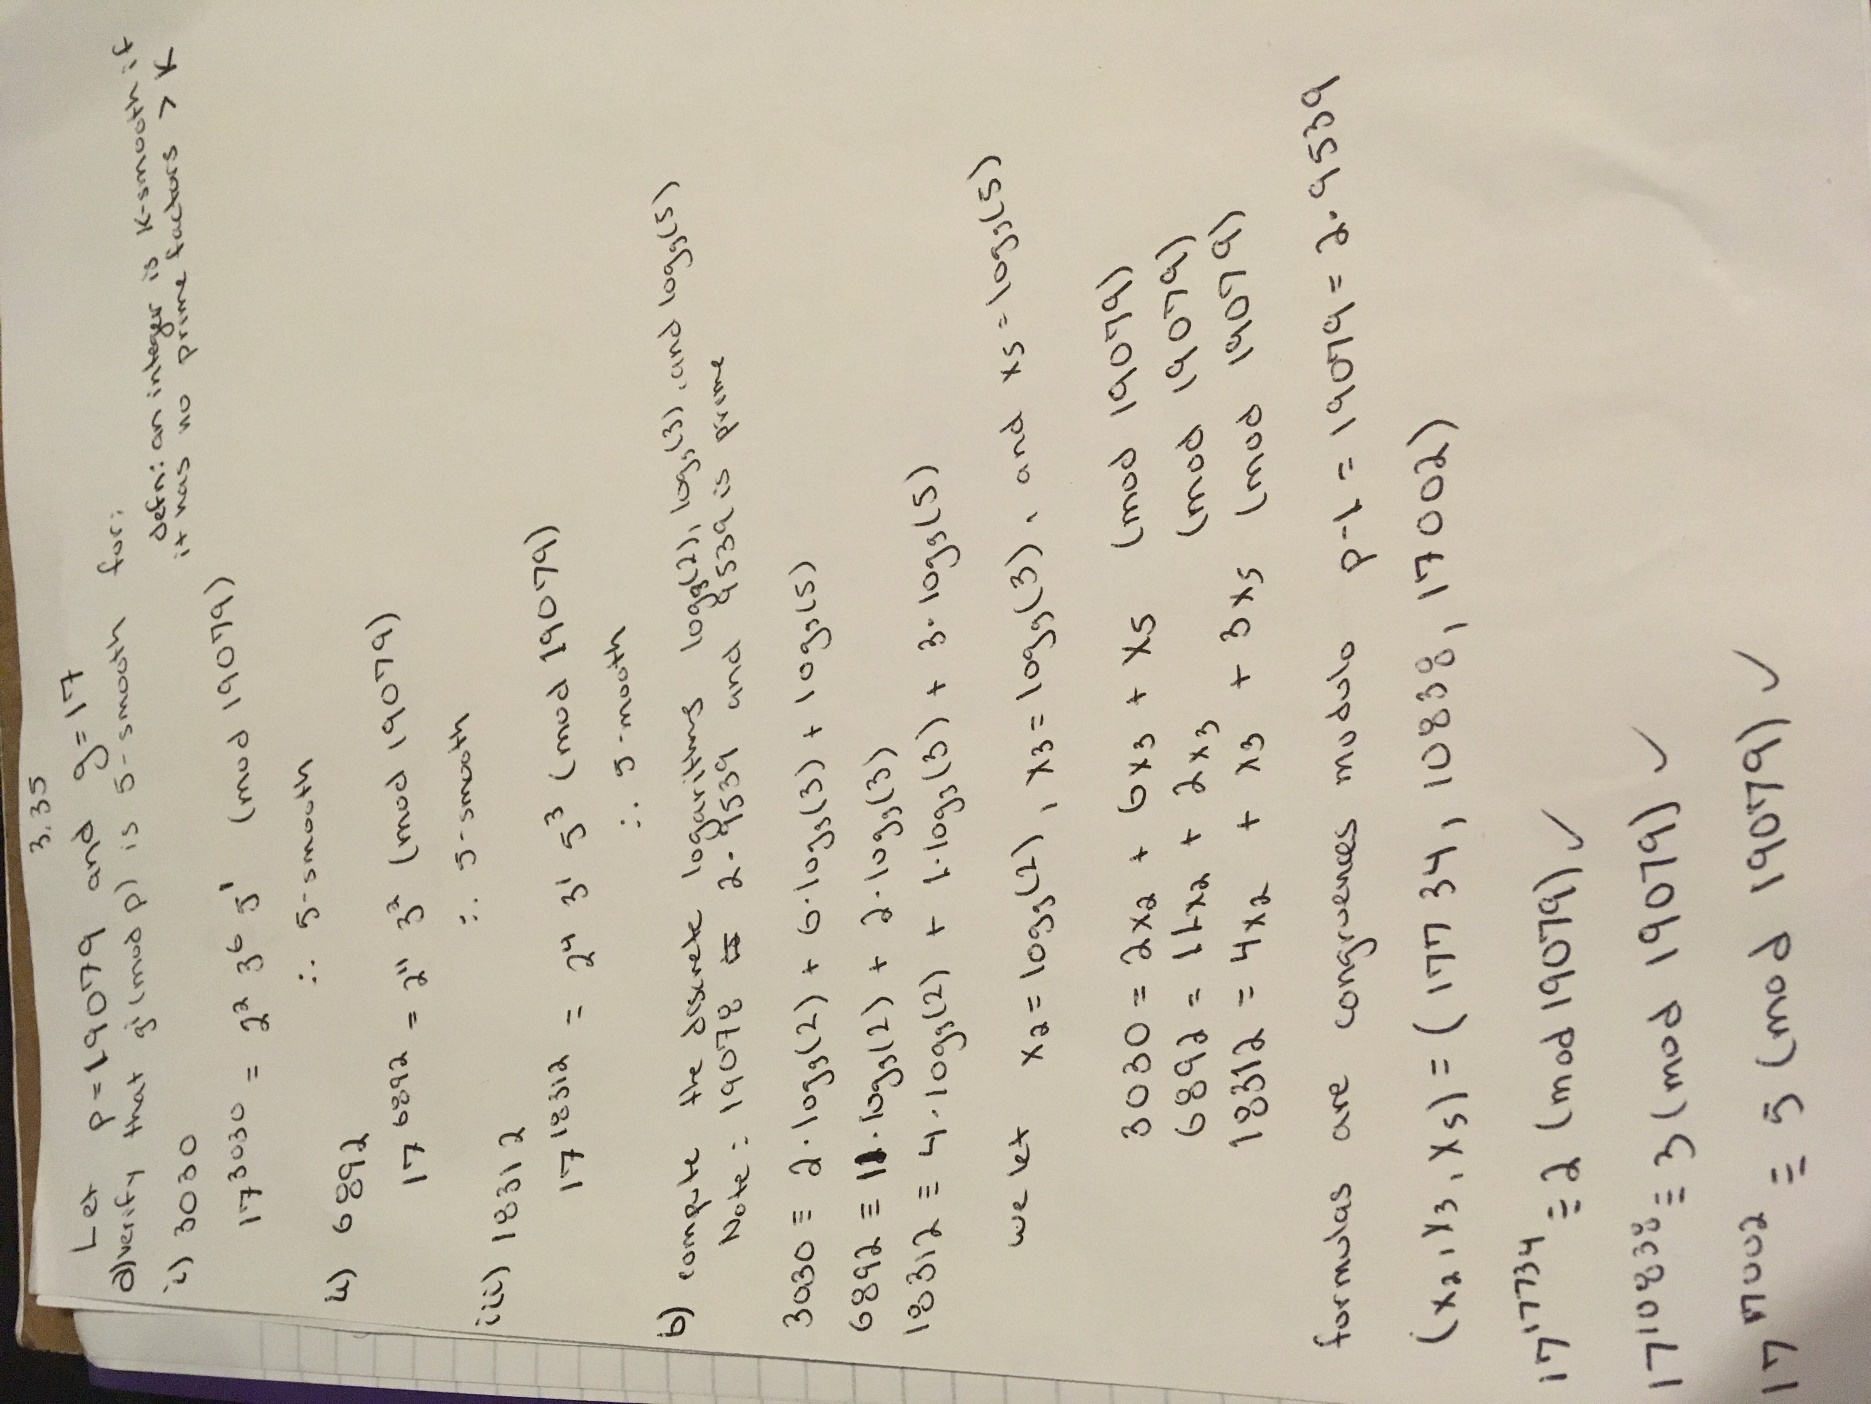 3.35
Let p=19079 and g=17
a) verify that gⁱ (mod p) is 5-smooth for:
defn: an integer is K-smooth if
it has no prime factors > K
i) 3030
17³⁰³⁰ = 2² 3⁶ 5¹ (mod 19079)
∴ 5-smooth
ii) 6892
17⁶⁸⁹² = 2¹¹ 3² (mod 19079)
∴ 5-smooth
iii) 18312
17¹⁸³¹² = 2⁴ 3¹ 5³ (mod 19079)
∴ 5-smooth
b) compute the discrete logarithms log₉(2), log₉(3), and log₉(5)
Note: 19078 = 2·9539 and 9539 is prime
3030 ≡ 2·log₉(2) + 6·log₉(3) + log₉(5)
6892 ≡ 11·log₉(2) + 2·log₉(3)
18312 ≡ 4·log₉(2) + 1·log₉(3) + 3·log₉(5)
we let x₂ = log₉(2), x₃ = log₉(3), and x₅ = log₉(5)
3030 = 2x₂ + 6x₃ + x₅ (mod 19079)
6892 = 11x₂ + 2x₃ (mod 19079)
18312 = 4x₂ + x₃ + 3x₅ (mod 19079)
formulas are congruences modulo p-1 = 19079 = 2·9539
(x₂, x₃, x₅) = (17734, 10838, 17002)
17¹⁷⁷³⁴ ≡ 2 (mod 19079) ✓
17¹⁰⁸³⁸ ≡ 3 (mod 19079) ✓
17¹⁷⁰⁰² ≡ 5 (mod 19079) ✓